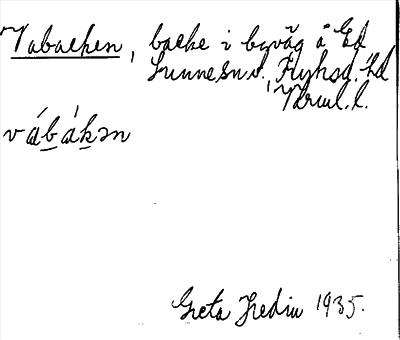 Vabacken, backe i byväg å Ed
Sunnesn s. Fryksd. hd
Värml. l.
vábákən
Greta Hedin 1935.